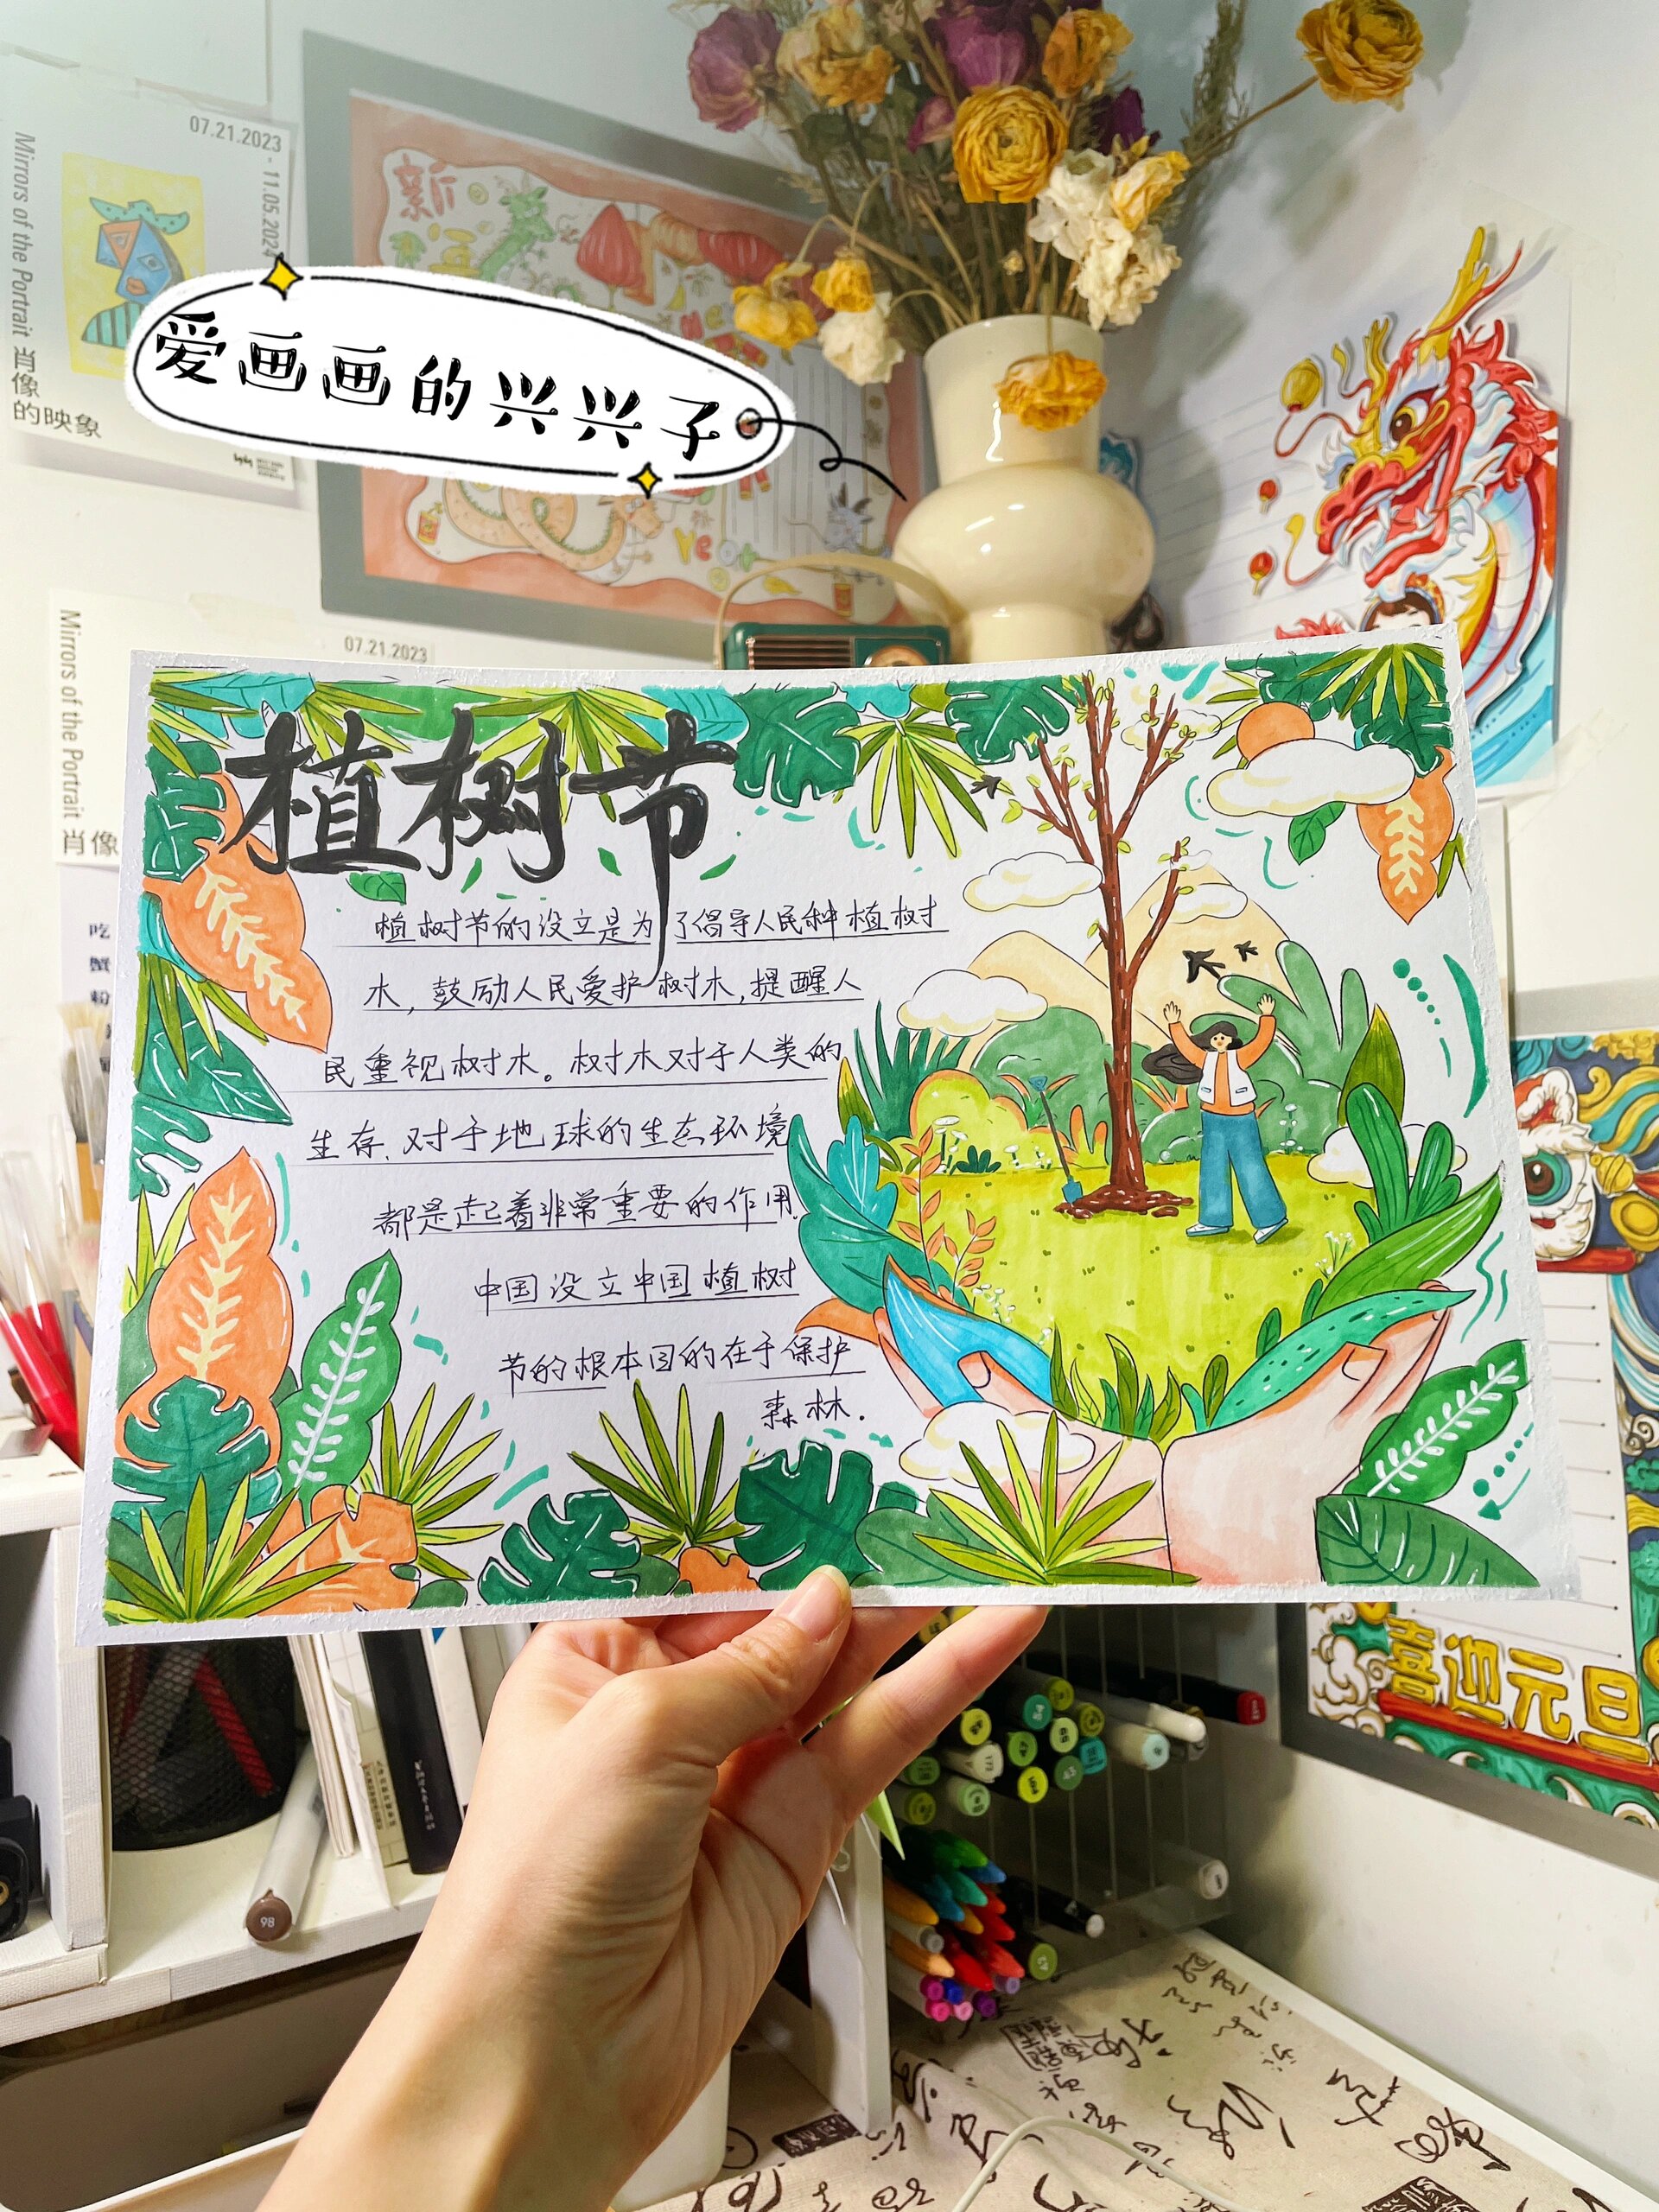 07.21.2023
- 11.05.2024
Mirrors of the Portrait
肖像
的映象
新
爱画画的兴兴子
07.21.2023
Mirrors of the Portrait
肖像
吃
蟹
粉
植树节
植树节的设立是为了倡导人民种植树
木,鼓励人民爱护树木,提醒人
民重视树木。树木对于人类的
生存、对于地球的生态环境
都是起着非常重要的作用.
中国设立中国植树
节的根本目的在于保护
森林.
喜迎元旦
98